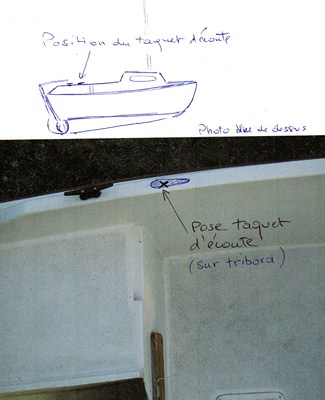 Position du taquet d'écoute
Photo Vue de dessus
Pose taquet
d'écoute
(sur tribord)